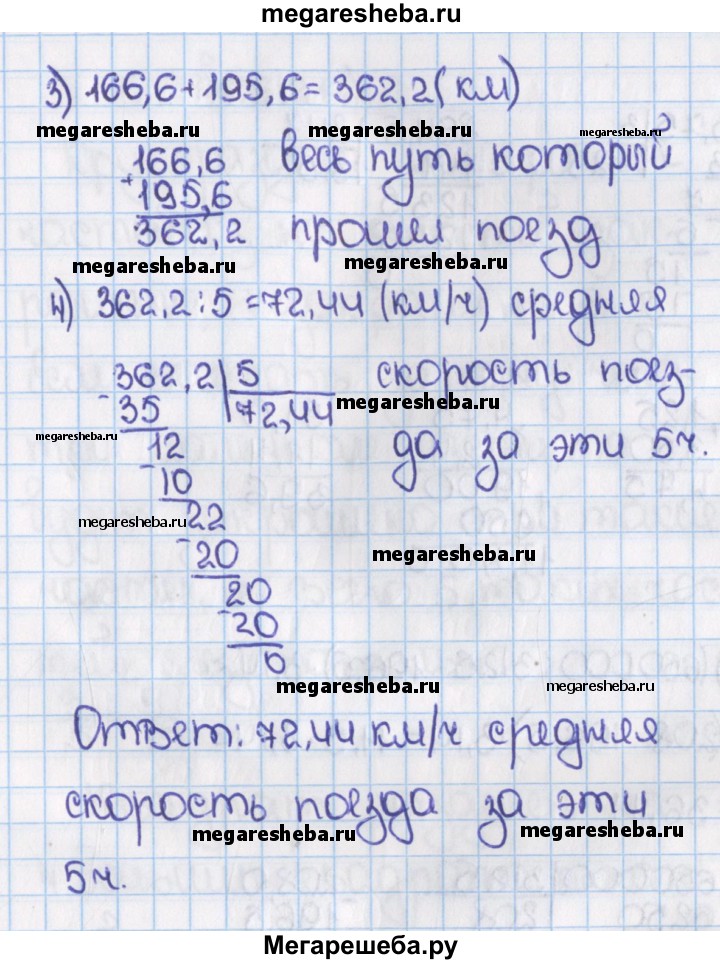 megaresheba.ru
3) 166,6+195,6=362,2(км)
megaresheba.ru megaresheba.ru megaresheba.ru
166,6 весь путь который
+195,6
362,2 прошел поезд
megaresheba.ru megaresheba.ru
4) 362,2:5=72,44 (км/ч) средняя
-362,2|5 скорость поез-
35 72,44 megaresheba.ru
megaresheba.ru -12 да за эти 5ч.
10
megaresheba.ru -22
20 megaresheba.ru
-20
20
0
megaresheba.ru megaresheba.ru
Ответ: 72,44 км/ч средняя
скорость поезда за эти
megaresheba.ru megaresheba.ru
5ч.
Мегарешеба.ру